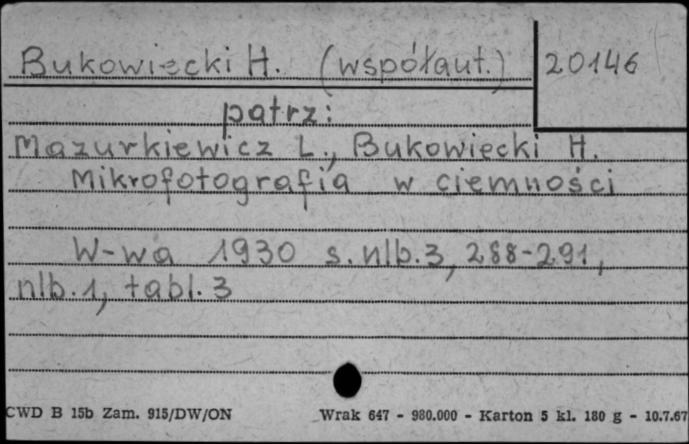 Bukowiecki H. (współaut.) 20146
patrz:
Mazurkiewicz L., Bukowiecki H.
Mikrofotografia w ciemności
W-wa 1930 s. nlb. 3, 288-291,
nlb. 1, tabl. 3
CWD B 15b Zam. 915/DW/ON Wrak 647 - 980.000 - Karton 5 kl. 180 g - 10.7.67